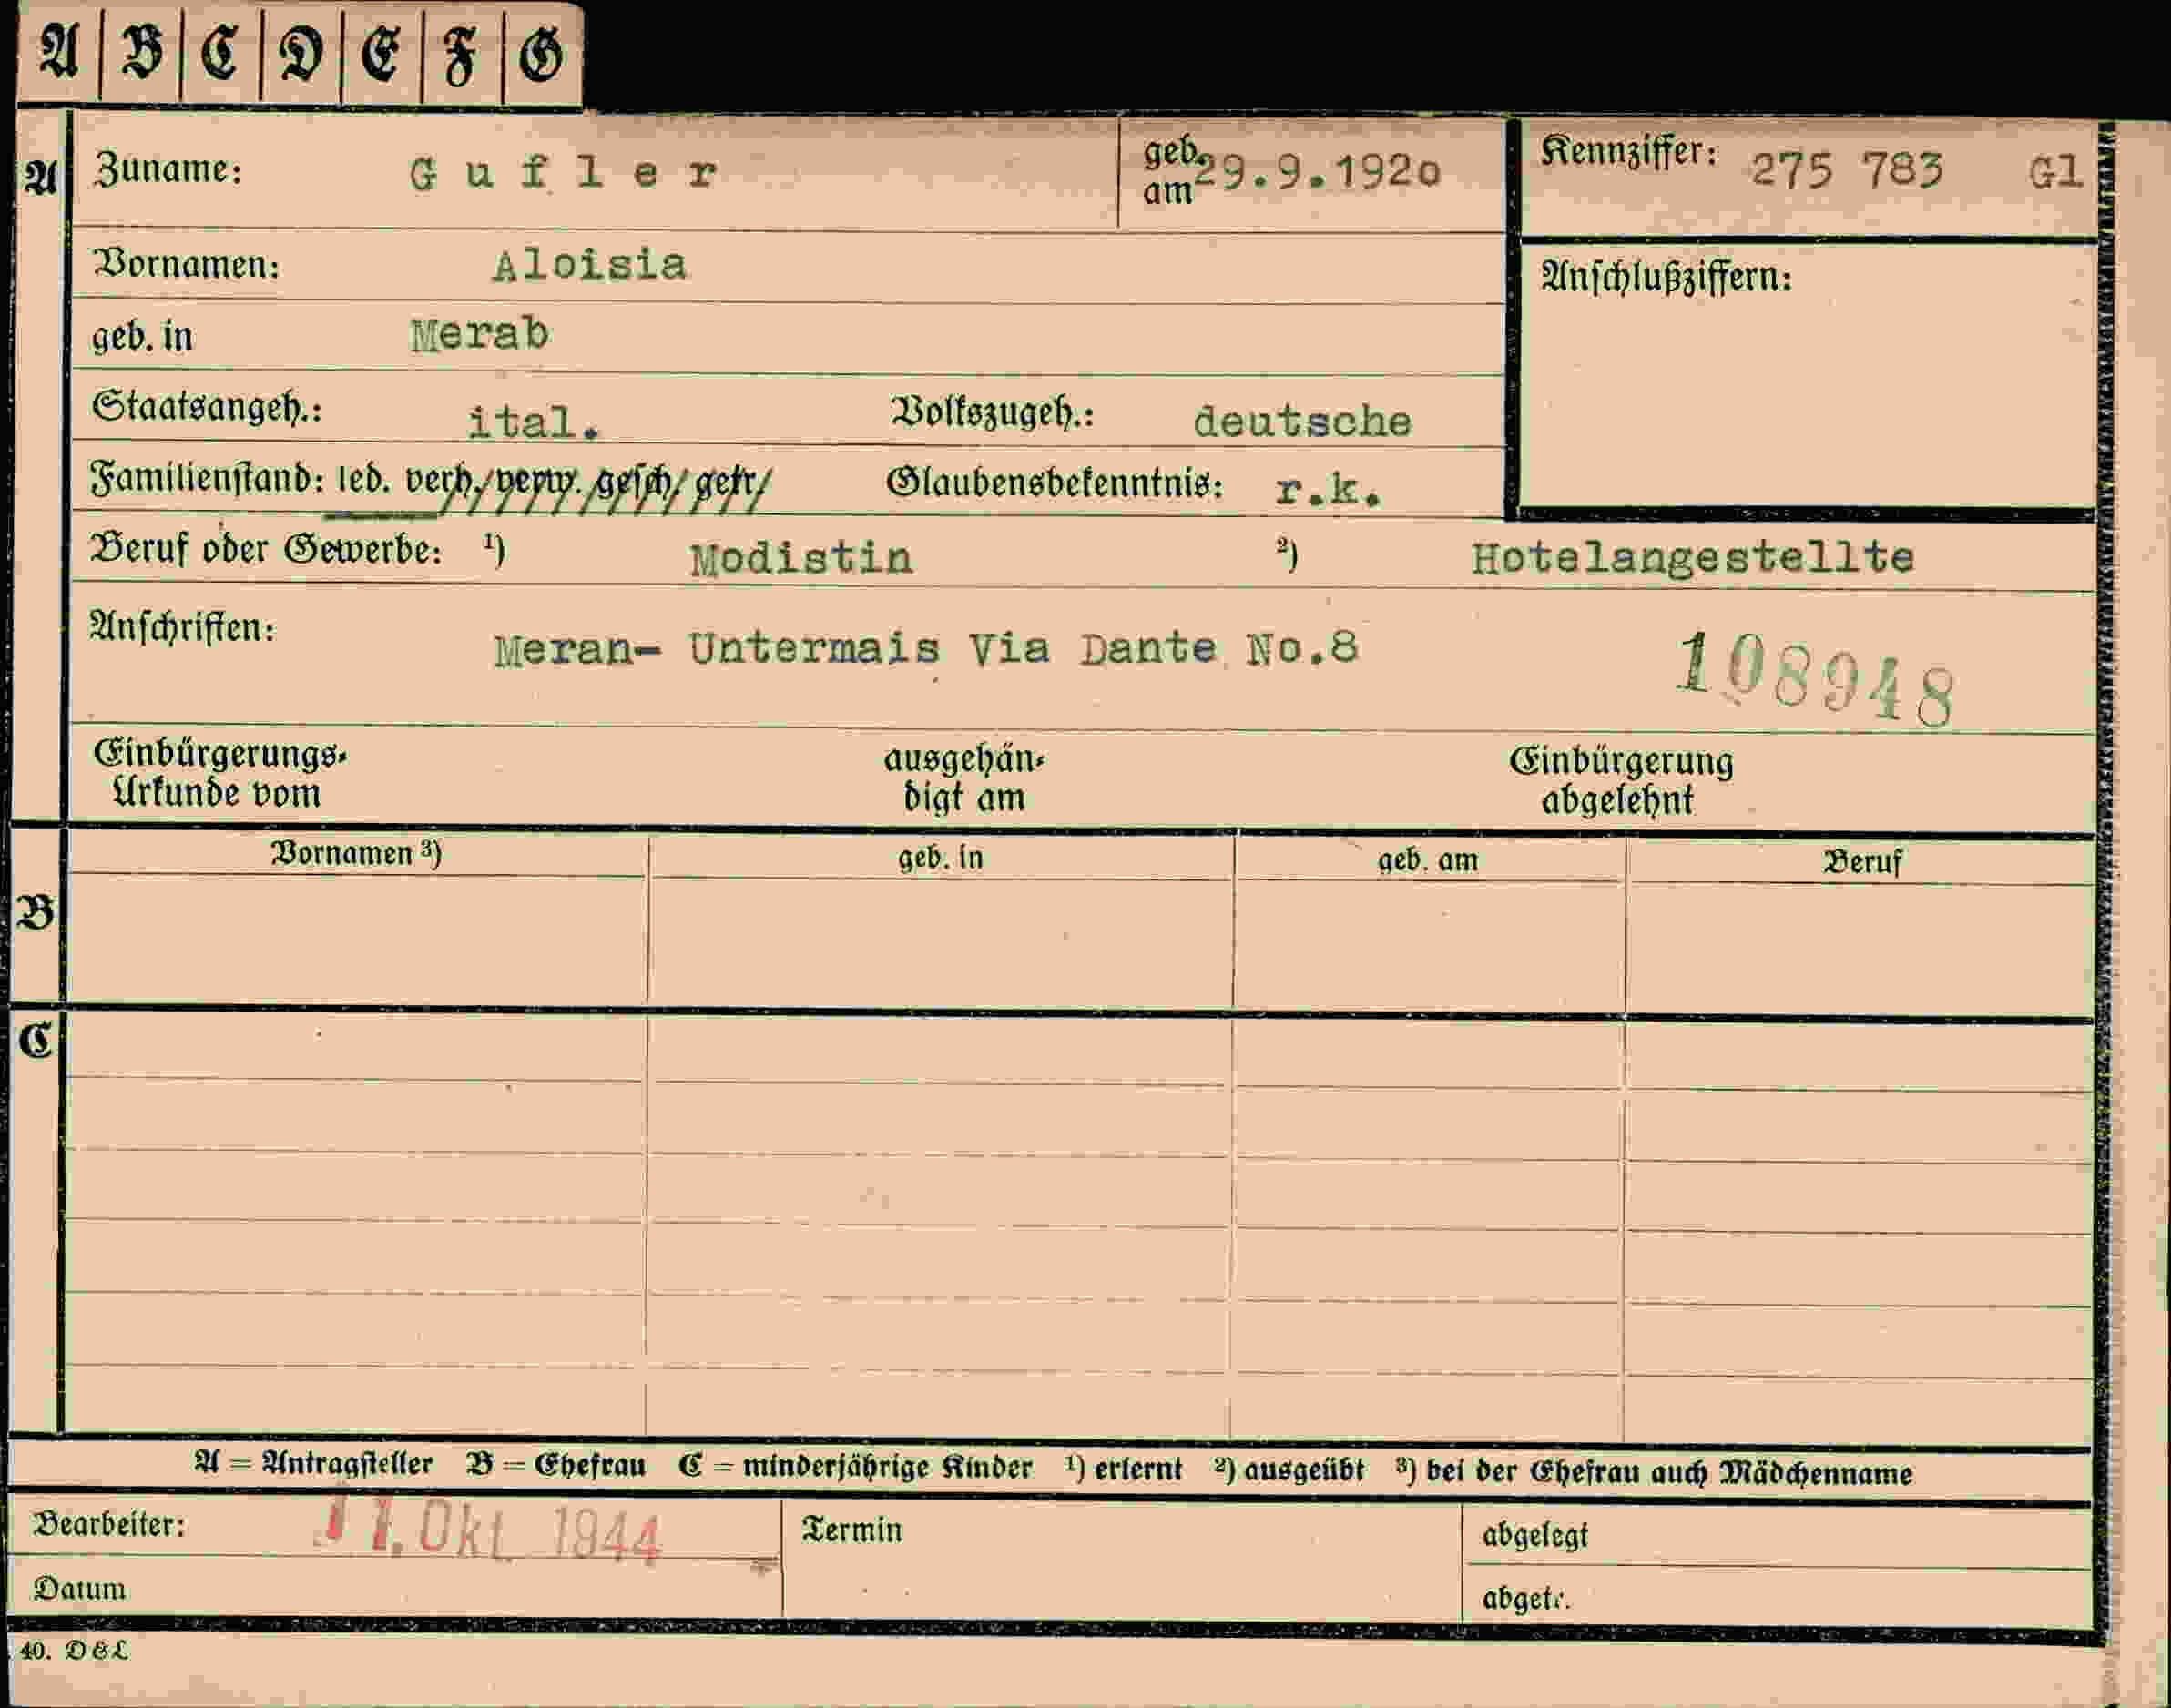 A B C D E F G
A Zuname: Gufler geb. am 29.9.1920 Kennziffer: 275 783 Gl
Vornamen: Aloisia Anschlußziffern:
geb. in Merab
Staatsangeh.: ital. Volkszugeh.: deutsche
Familienstand: led. verh. verw. gesch. getr. Glaubensbekenntnis: r.k.
Beruf oder Gewerbe: 1) Modistin 2) Hotelangestellte
Anschriften: Meran- Untermais Via Dante No.8 108948
Einbürgerungs-Urkunde vom ausgehändigt am Einbürgerung abgelehnt
Vornamen 3) geb. in geb. am Beruf
B
C
A = Antragsteller B = Ehefrau C = minderjährige Kinder 1) erlernt 2) ausgeübt 3) bei der Ehefrau auch Mädchenname
Bearbeiter: 11. Okt. 1944 Termin abgelegt
Datum abgetr.
40. D&L